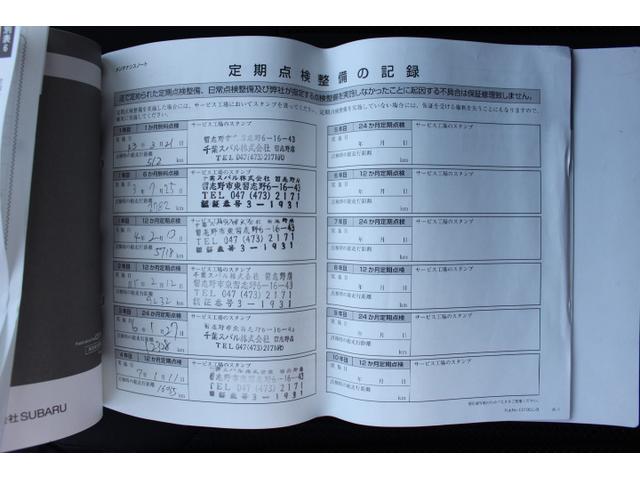 別表6
メンテナンスノート
定期点検整備の記録
法で定められた定期点検整備、日常点検整備及び弊社が指定する点検整備を実施しなかったことに起因する不具合は保証修理致しません。
1年目 1か月無料点検
実施日 3年3月21日
点検時の総走行距離
512 km
サービス工場のスタンプ
習志野市東習志野6-16-43
千葉スバル株式会社 習志野店
TEL 047(473)2171㈹
1年目 6か月無料点検
実施日 3年7月25日
点検時の総走行距離
km
サービス工場のスタンプ
千葉スバル株式会社 習志野店
習志野市東習志野6-16-43
TEL 047 (473) 2171
認証番号3-1931
1年目 12か月定期点検
実施日 4年2月13日
点検時の総走行距離
5718 km
サービス工場のスタンプ
習志野市東習志野6-16-43
TEL 047 (473) 2171
認証番号3-1931
2年目 12か月定期点検
実施日 5年2月12日
点検時の総走行距離
9632 km
サービス工場のスタンプ
千葉スバル株式会社 習志野店
習志野市東習志野6-16-43
TEL 047 (473) 2171
認証番号3-1931
3年目 24か月定期点検
実施日 6年1月27日
点検時の総走行距離
km
サービス工場のスタンプ
習志野市東習志野6-16-43
千葉スバル株式会社 習志野店
TEL 047(473)2171㈹
4年目 12か月定期点検
実施日 7年1月11日
点検時の総走行距離
km
サービス工場のスタンプ
千葉スバル株式会社 習志野店
習志野市東習志野6-16-43
TEL 047 (473) 2171
認証番号3-1931
5年目 24か月定期点検
実施日 年 月 日
点検時の総走行距離
km
サービス工場のスタンプ
6年目 12か月定期点検
実施日 年 月 日
点検時の総走行距離
km
サービス工場のスタンプ
7年目 24か月定期点検
実施日 年 月 日
点検時の総走行距離
km
サービス工場のスタンプ
8年目 12か月定期点検
実施日 年 月 日
点検時の総走行距離
km
サービス工場のスタンプ
9年目 24か月定期点検
実施日 年 月 日
点検時の総走行距離
km
サービス工場のスタンプ
10年目 12か月定期点検
実施日 年 月 日
点検時の総走行距離
km
サービス工場のスタンプ
会社 SUBARU